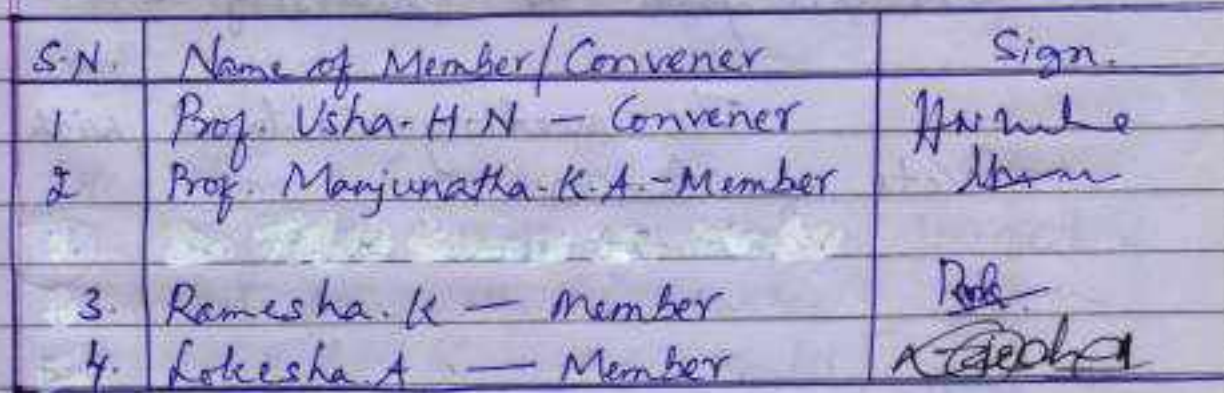 S.N. Name of Member/Convener Sign.
1 Prof. Usha. H.N - Convener
2 Prof. Manjunatha. K.A. - Member
3. Ramesha. K - Member
4. Lokesha. A - Member